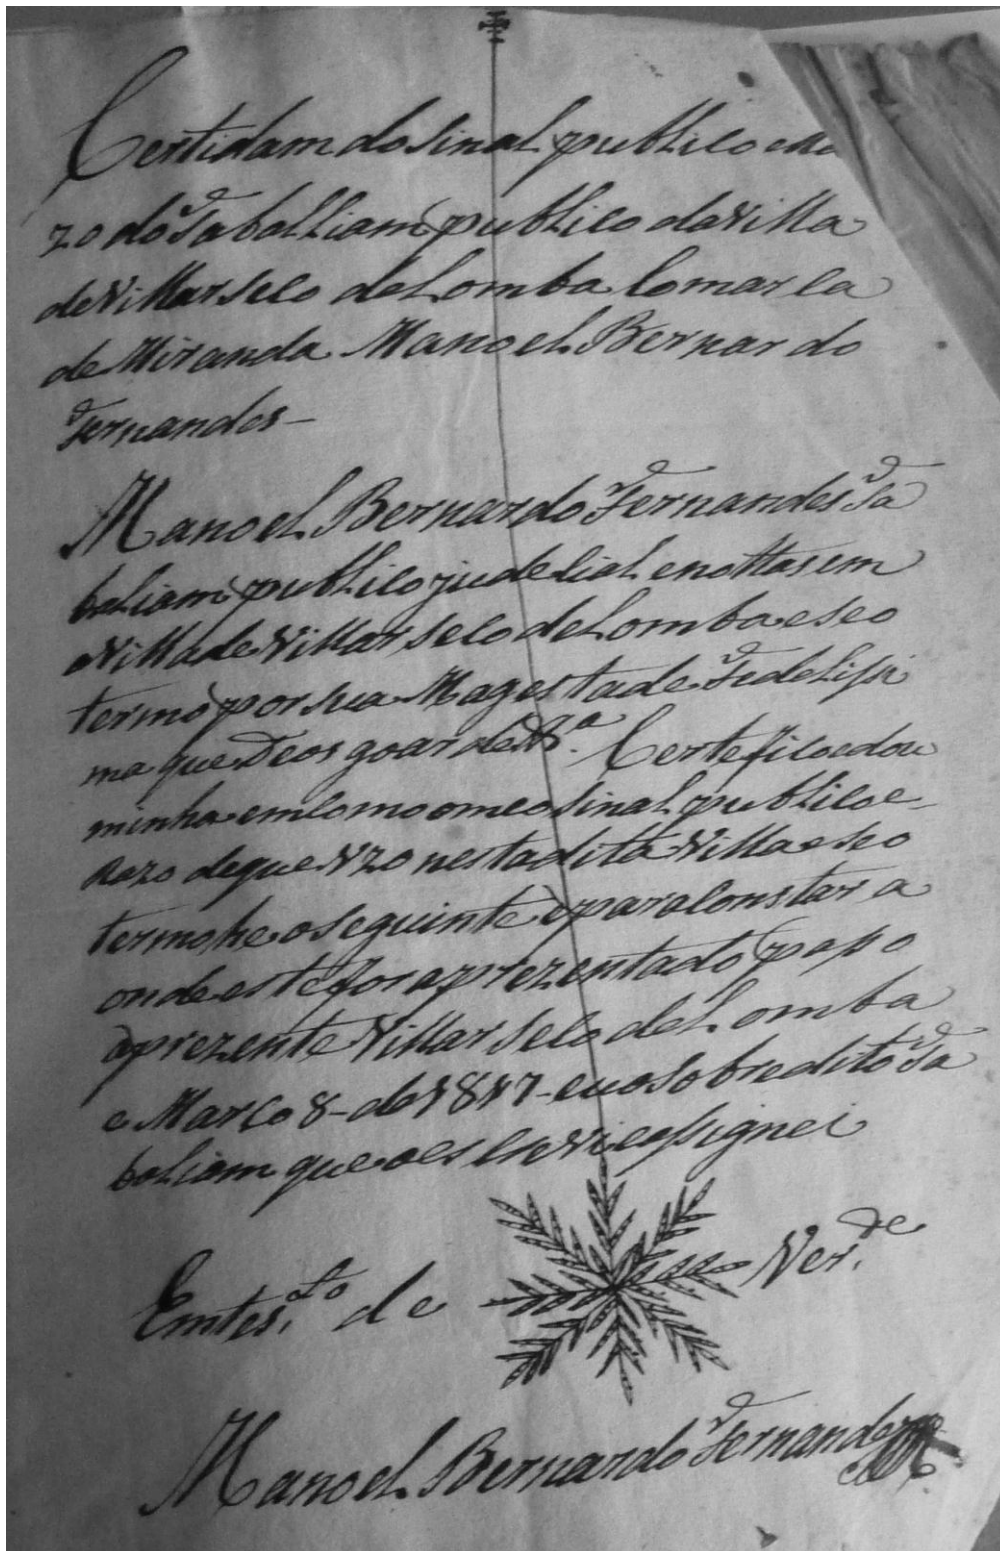 Certidam do Sinal publico e Ra
zo do Taballiam publico da Villa
de Villar Seco de Lomba Comarca
de Miranda Manoel Bernardo
Fernandes -
Manoel Bernardo Fernandes Ta
baliam publico judecial e nottas em
a Villa de Villar Seco de Lomba e seo
termo por sua Magestade Fedelissi
ma que Deos goarde &.ª Certefico e dou
minha em como o meo Sinal publico e
Razo de que Vzo nesta dita Villa e seo
termo he o seguinte e para constar a
onde este for aprezentado passo
a prezente Villar Seco de Lomba
e Março 8 - de 1817 - eu o sobredito Ta
baliam que o escrevi e assignei
Emtes.to de Ver.de
Manoel Bernardo Fernandes